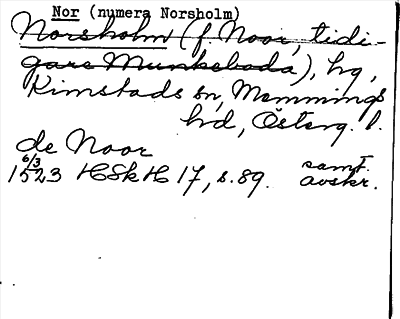 Nor (numera Norsholm)
Norsholm (f. Noor, tidi-
gare Munkeboda), hg,
Kimstads sn, Memmings
hd, Österg. l.
de Noor
6/3
1523 HSkH 17, s. 89. samt.
avskr.